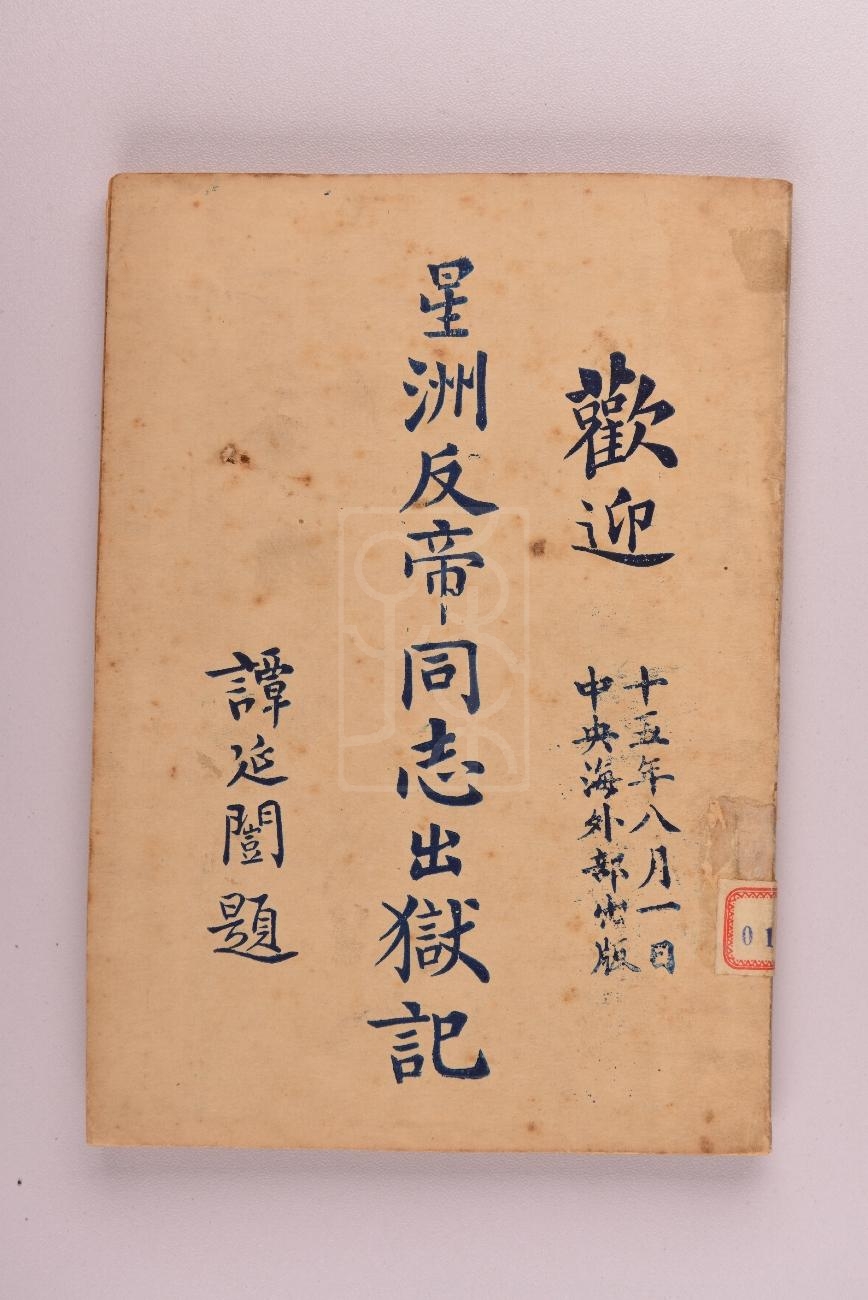 歡迎
十五年八月一日
中央海外部出版
星洲反帝同志出獄記
譚延闓題
01